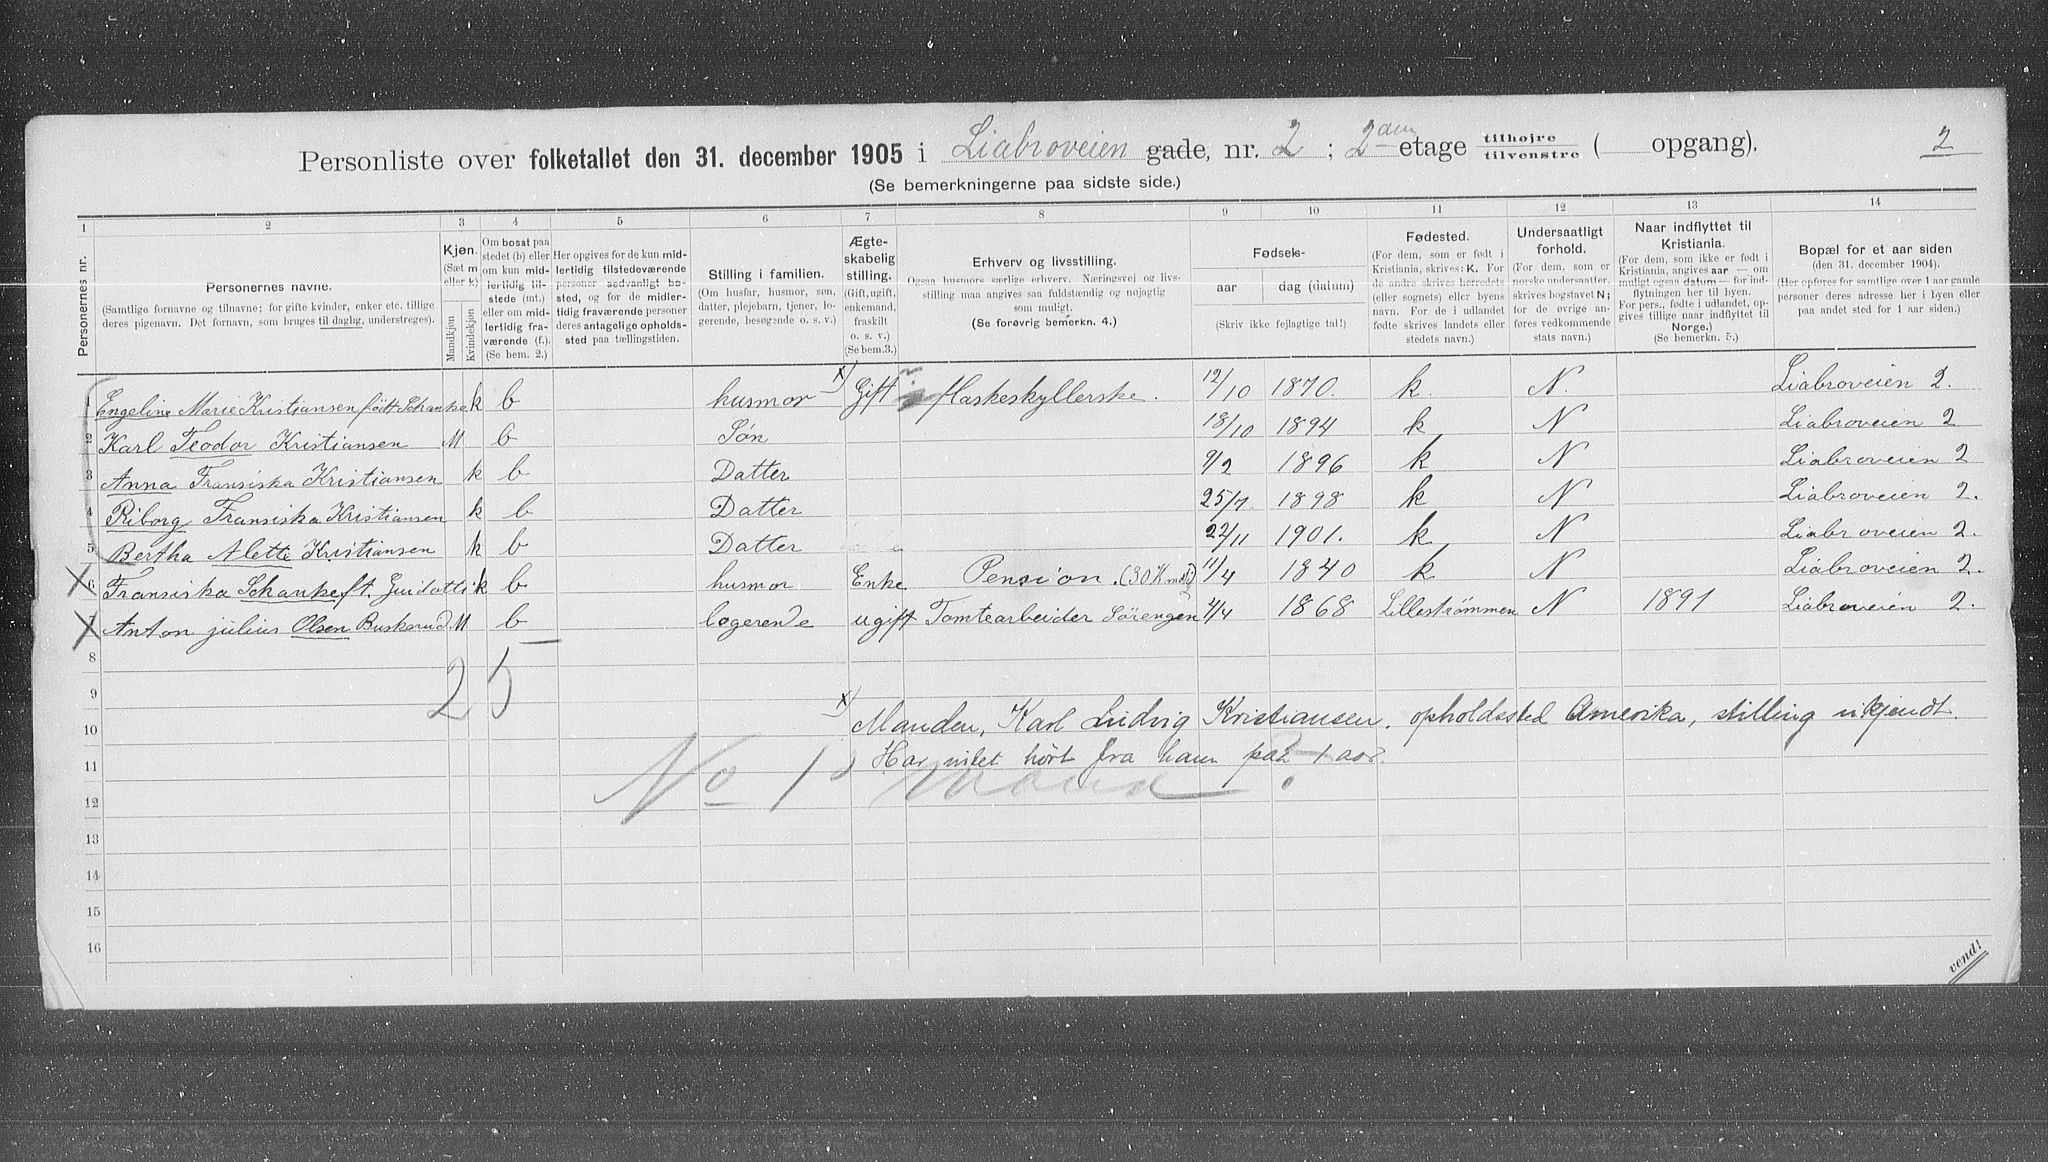 Personliste over folketallet den 31. december 1905 i Liabroveien gade, nr. 2 ; 2 etage tilhøjre tilvenstre ( opgang). 2
(Se bemerkningerne paa sidste side.)
1 2 3 4 5 6 7 8 9 10 11 12 13 14
Personernes nr.
Personernes navne.
(Samtlige fornavne og tilnavne; for gifte kvinder, enker etc. tillige
deres pigenavn. Det fornavn, som bruges til daglig, understreges).
Kjøn.
(Sæt m
eller k)
Mandkjøn
Kvindekjøn
Om bosat paa
stedet (b) eller
om kun mid-
lertidig til-
stede (mt.)
eller om mid-
lertidig fra-
værende (f.).
(Se bem. 2.)
Her opgives for de kun mid-
lertidig tilstedeværende
personer sedvanligt bo-
sted, og for de midler-
tidig fraværende personer
deres antagelige opholds-
sted paa tællingstiden.
Stilling i familien.
(Om husfar, husmor, søn,
datter, plejebarn, tjener, lo-
gerende, besøgende o. s. v.)
Ægte-
skabelig
stilling.
(Gift, ugift,
enkemand,
fraskilt
o. s. v.)
(Se bem.3.)
Erhverv og livsstilling.
Ogsaa husmors særlige erhverv. Næringsvej og livs-
stilling maa angives saa fuldstændig og nøjagtig
som muligt.
(Se forøvrig bemerkn. 4.)
Fødsels-
aar dag (datum)
(Skriv ikke fejlagtige tal!)
Fødested.
(For dem, som er født i
Kristiania, skrives: K. For
de andre skrives herredets
(eller sognets) eller byens
navn. For de i udlandet
fødte skrives landets eller
stedets navn.)
Undersaatligt
forhold.
(For dem, som er
norske undersaatter,
skrives bogstavet N;
for de øvrige an-
føres vedkommende
stats navn.)
Naar indflyttet til
Kristiania.
(For dem, som ikke er født i
Kristiania, angives aar — om
muligt ogsaa datum — for ind-
flytningen her til byen.
For pers., fødte i udlandet, op-
gives tillige naar indflyttet til
Norge.)
(Se bemerkn. 5.)
Bopæl for et aar siden
(den 31. december 1904).
(Her opføres for samtlige over 1 aar gamle
personer deres adresse her i byen eller
paa andet sted for 1 aar siden.)
1 Engeline Marie Kristiansen født Schanke k b husmor x) Gift flaskeskyllerske. 12/10 1870. k. N. Liabroveien 2.
2 Karl Teodor Kristiansen M b Søn 18/10 1894 k N Liabroveien 2
3 Anna Fransiska Kristiansen k b Datter 9/2 1896 k N Liabroveien 2
4 Riborg Fransiska Kristiansen k b Datter 25/7 1898 k N Liabroveien 2.
5 Bertha Alette Kristiansen k b Datter 22/11 1901. k N Liabroveien 2.
x 6 Fransiska Schanke ft. k b husmor Enke Pension. (30 K mdl) 11/4 1840 k N Liabroveien 2.
x 7 Anton julius Olsen Buskerud M b logerende ugift Tomtearbeider Sörengen 1868 Lillestrømmen N 1891 Liabroveien 2.
8
2 5
9
x) Manden, Karl Ludvig Kristiansen. opholdssted Amerika, stilling ukjendt.
10
Har intet hørt fra ham paa 1 aar.
11
No 1
12
13
14
15
16
vend!